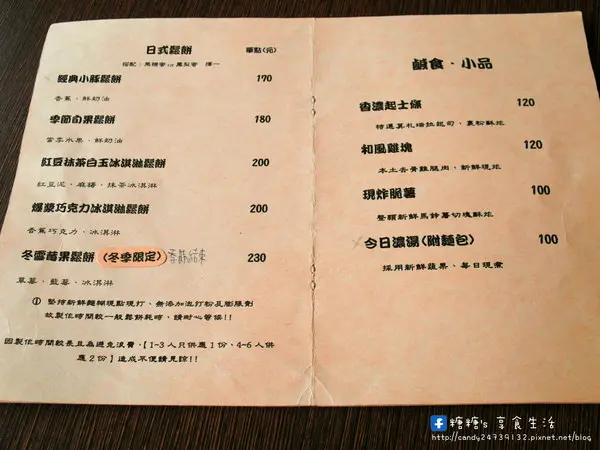 日式鬆餅 單點(元)
搭配：黑糖蜜 or 鳳梨蜜 擇一
經典小豚鬆餅 190
香蕉、鮮奶油
季節白果鬆餅 180
當季水果、鮮奶油
紅豆抹茶白玉冰淇淋鬆餅 200
紅豆泥、麻糬、抹茶冰淇淋
爆漿巧克力冰淇淋鬆餅 200
香蕉巧克力、冰淇淋
冬雪莓果鬆餅(冬季限定) 結束 230
草莓、藍莓、冰淇淋
① 堅持新鮮麵糊現點現打、無添加泡打粉及膨脹劑
故製作時間較一般鬆餅耗時，請耐心等候!!
因製作時間較長且為避免浪費，【1-3 人只供應 1 份、4-6 人供
應 2 份】造成不便請見諒!!
鹹食·小品
香濃起士條 120
特選莫札瑞拉起司、裹粉酥炸
和風雞塊 120
本土去骨雞腿肉、新鮮現炸
現炸脆薯 100
整顆新鮮馬鈴薯切塊酥炸
今日濃湯(附麵包) 100
採用新鮮蔬果、每日現煮
糖糖's 享食生活
http://candy24739132.pixnet.net/blog